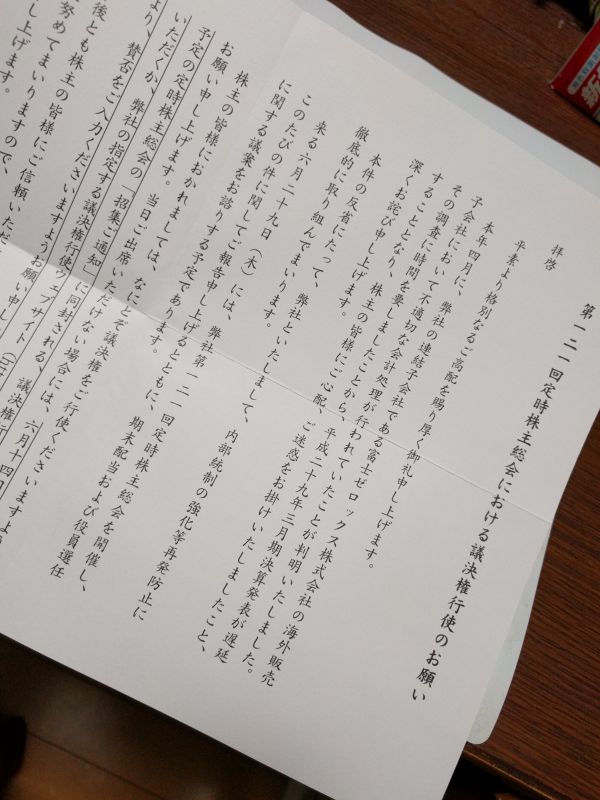 第一二一回定時株主総会における議決権行使のお願い
拝啓
平素より格別なるご高配を賜り厚く御礼申し上げます。
本年四月に、弊社の連結子会社である富士ゼロックス株式会社の海外販売
子会社において不適切な会計処理が行われていたことが判明いたしました。
その調査に時間を要しましたことから、平成二十九年三月期決算発表が遅延
することとなり、株主の皆様にご心配、ご迷惑をお掛けいたしましたこと、
深くお詫び申し上げます。
本件の反省にたって、弊社といたしまして、内部統制の強化等再発防止に
徹底的に取り組んでまいります。
来る六月二十九日（木）には、弊社第一二一回定時株主総会を開催し、
このたびの件に関してご報告申し上げるとともに、期末配当および役員選任
に関する議案をお諮りする予定であります。
株主の皆様におかれましては、なにとぞ議決権をご行使くださいますよう
お願い申し上げます。当日ご出席いただけない場合には、六月十四日
予定の定時株主総会の「招集ご通知」に同封される、議決権行
いただくか、弊社の指定する議決権行使ウェブサイト（
より、賛否をご入力くださいますようお願い申し
後とも株主の皆様にご信頼いただ
努めてまいりますので、
し上げます。